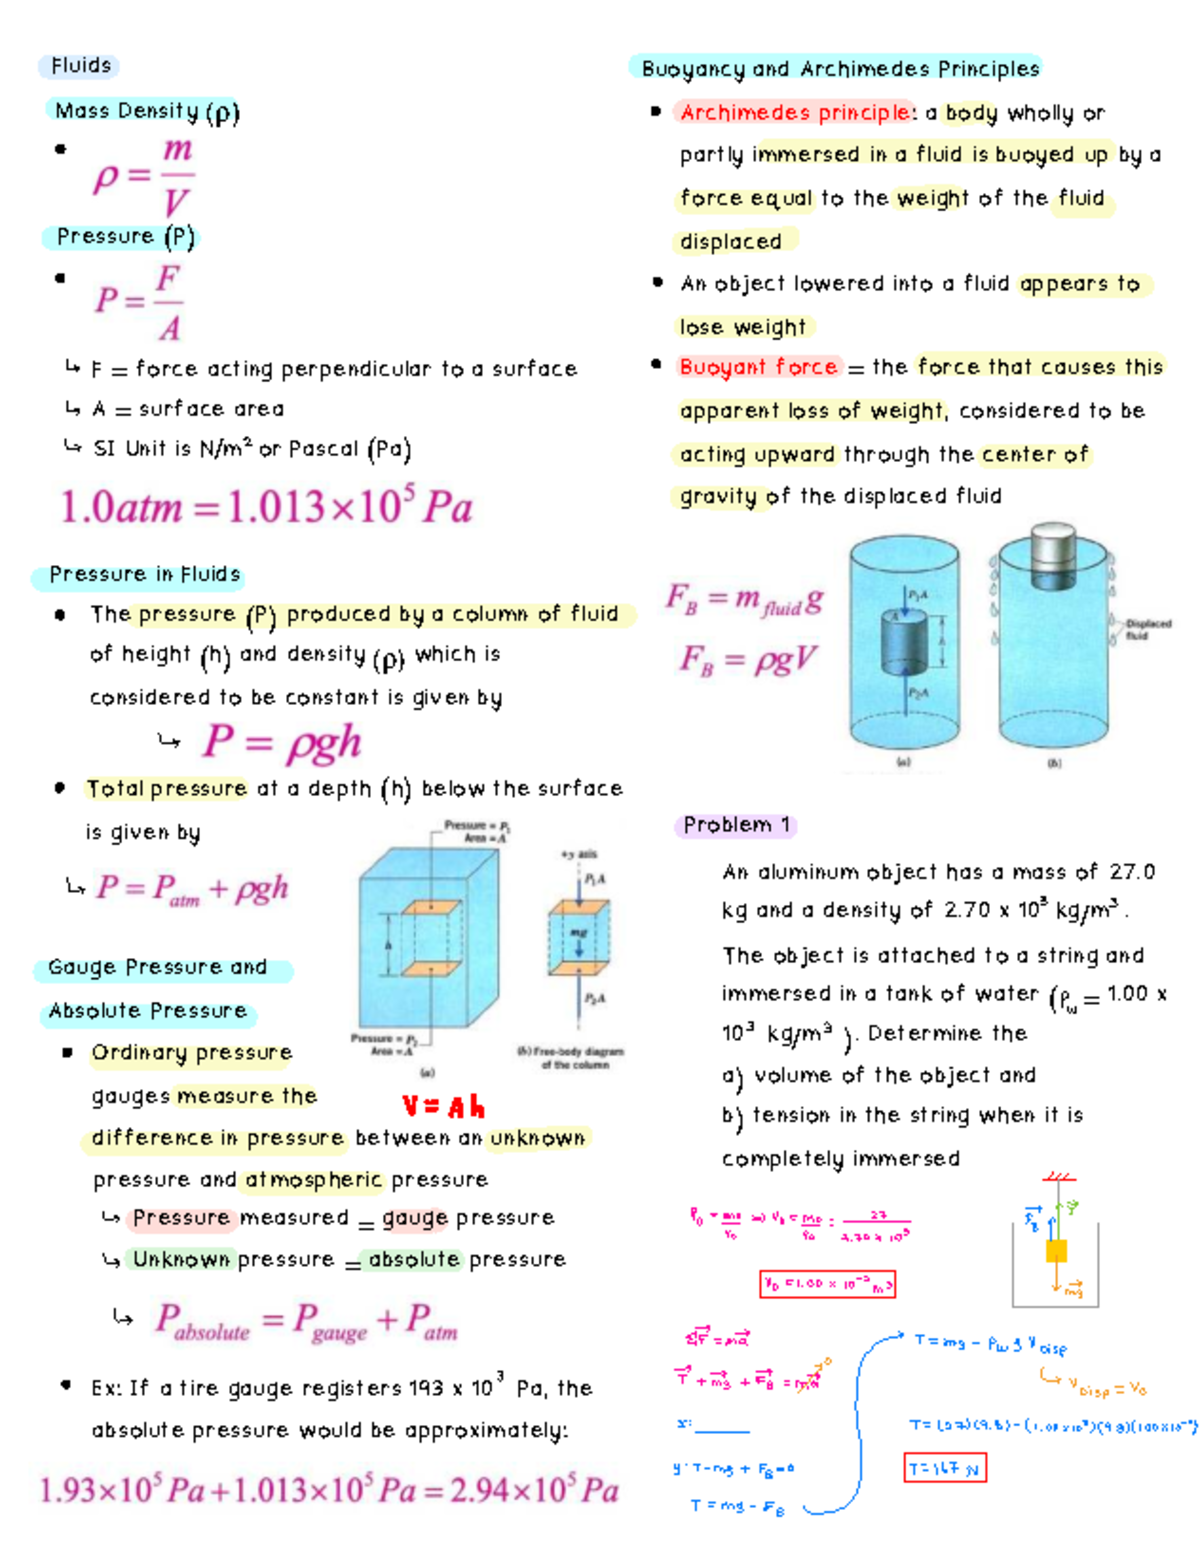 Fluids
Mass Density (ρ)
• ρ = m/V
Pressure (P)
• P = F/A
↳ F = force acting perpendicular to a surface
↳ A = surface area
↳ SI Unit is N/m² or Pascal (Pa)
1.0atm = 1.013×10⁵ Pa
Pressure in Fluids
• The pressure (P) produced by a column of fluid
of height (h) and density (ρ) which is
considered to be constant is given by
↳ P = ρgh
• Total pressure at a depth (h) below the surface
is given by
↳ P = Patm + ρgh
Pressure = P₁
Area = A
h
Pressure = P₂
Area = A
(a)
+y axis
P₁A
mg
P₂A
(b) Free-body diagram
of the column
V = Ah
Gauge Pressure and
Absolute Pressure
• Ordinary pressure
gauges measure the
difference in pressure between an unknown
pressure and atmospheric pressure
↳ Pressure measured = gauge pressure
↳ Unknown pressure = absolute pressure
↳ Pabsolute = Pgauge + Patm
• Ex: If a tire gauge registers 193 x 10³ Pa, the
absolute pressure would be approximately:
1.93×10⁵ Pa + 1.013×10⁵ Pa = 2.94×10⁵ Pa
Buoyancy and Archimedes Principles
• Archimedes principle: a body wholly or
partly immersed in a fluid is buoyed up by a
force equal to the weight of the fluid
displaced
• An object lowered into a fluid appears to
lose weight
• Buoyant force = the force that causes this
apparent loss of weight, considered to be
acting upward through the center of
gravity of the displaced fluid
F_B = m_fluid g
F_B = ρgV
P₁A
A
h
P₂A
(a)
Displaced
fluid
(b)
Problem 1
An aluminum object has a mass of 27.0
kg and a density of 2.70 x 10³ kg/m³.
The object is attached to a string and
immersed in a tank of water (ρw = 1.00 x
10³ kg/m³ ). Determine the
a) volume of the object and
b) tension in the string when it is
completely immersed
ρ₀ = m₀/V₀ => V₀ = m₀/ρ₀ = 27/2.70 x 10³
V₀ = 1.00 x 10⁻² m³
F_B
T
mg
ΣF = ma
T + mg + F_B = ma 0
x:
y: T - mg + F_B = 0
T = mg - F_B
T = mg - ρw g V Disp
↳ V Disp = V₀
T = (27)(9.8) - (1.00x10³)(9.8)(1.00x10⁻²)
T = 167 N